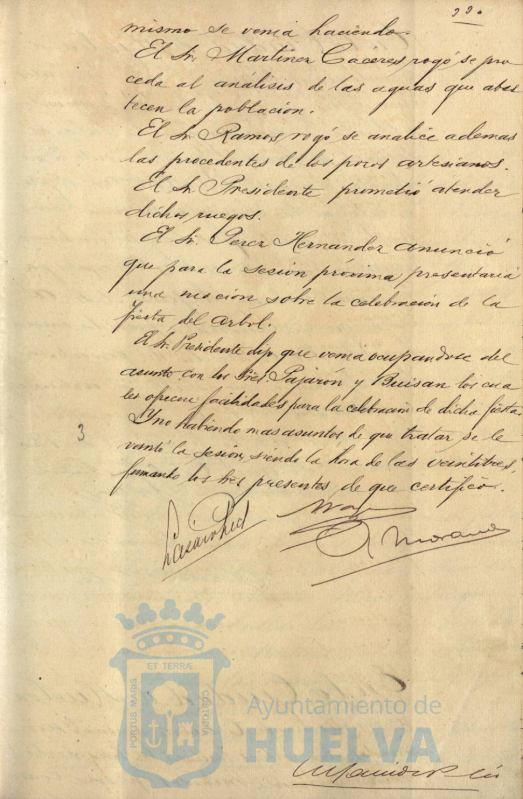 mismo se venia haciendo.
El Sr. Martinez Caceres rogó se pro
ceda al análisis de las aguas que abas
tecen la poblacion.
El Sr. Ramos rogó se analice ademas
las procedentes de los pozos artesianos.
El Sr. Presidente prometió atender
dichos ruegos.
El Sr. Perez Hernandez anunció
que para la sesión próxima presentaria
una moción sobre la celebración de la
fiesta del arbol.
El Sr. Presidente dijo que venia ocupandose del
asunto con los Sres. Pajarón y Buisan los cua
les ofrecen facilidades para la celebración de dicha fiesta.
Y no habiendo mas asuntos de que tratar se le
3
vantó la sesión, siendo la hora de las veintitres,
firmando los Sres presentes de que certifico.
Moreno
PORTUS MARIS ET TERRÆ CUSTODIA
Ayuntamiento de
HUELVA